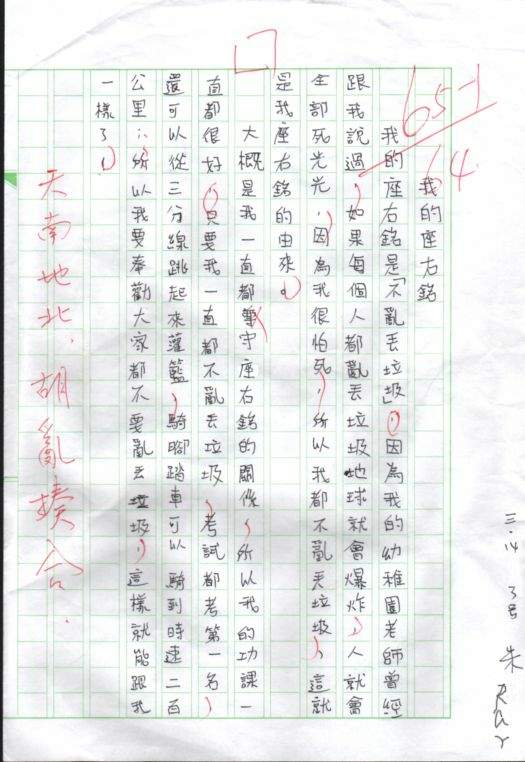 我的座右銘
我的座右銘是「不亂丟垃圾」，因為我的幼稚園老師曾經
跟我說過，如果每個人都亂丟垃圾地球就會爆炸，人就會
全部死光光，因為我很怕死，所以我都不亂丟垃圾，這就
是我座右銘的由來。
大概是我一直都遵守座右銘的關係，所以我的功課一
直都很好，只要我一直都不亂丟垃圾，考試都考第一名，
還可以從三分線跳起來灌籃，騎腳踏車可以騎到時速二百
公里，所以我要奉勸大家都不要亂丟垃圾，這樣就能跟我
一樣了！
天南地北，胡亂揍合。
65-1
64
三.14
3号
朱